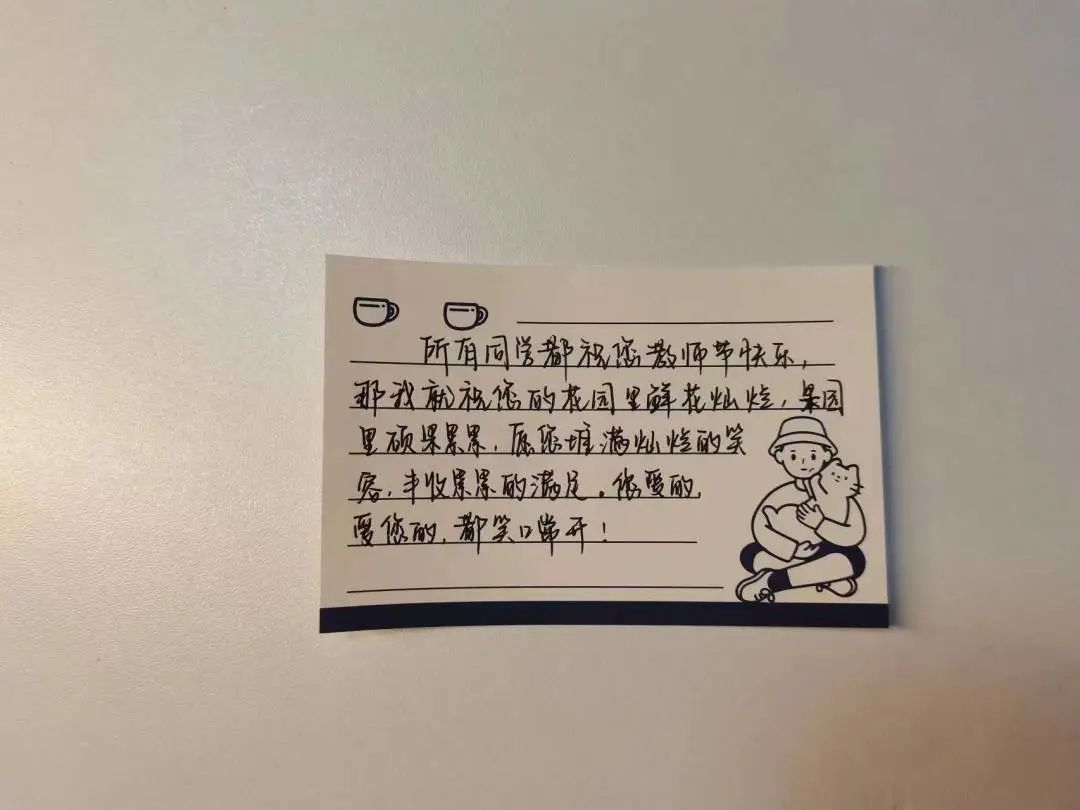 所有同学都祝您教师节快乐,
那我就祝您的花园里鲜花灿烂,果园
里硕果累累,愿您堆满灿烂的笑
容,丰收累累的满足。您爱的,
爱您的,都笑口常开!